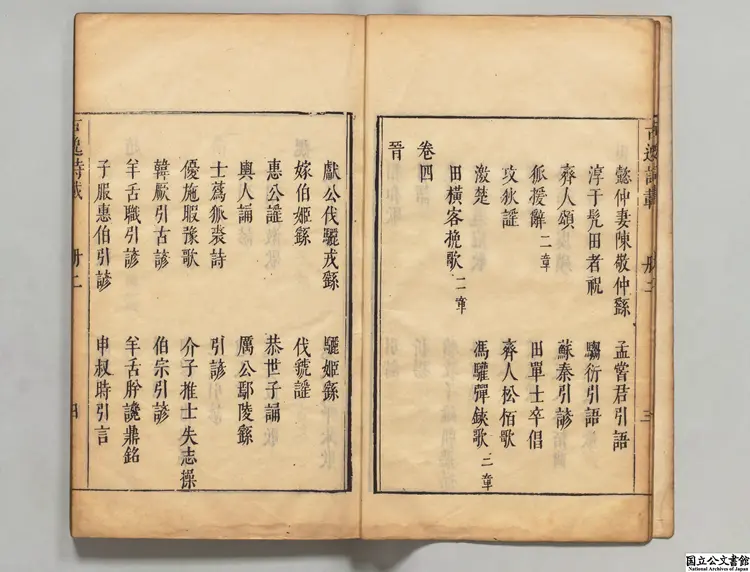 懿仲妻陳敬仲繇　孟嘗君引語
淳于髡田者祝　騶衍引語
齊人頌　蘇秦引諺
狐援辭二章　田單士卒倡
攻狄謡　齊人松栢歌
激楚　馮驩彈鋏歌三章
田橫客挽歌二章
卷四
晉
獻公伐驪戎繇　驪姬繇
嫁伯姬繇　伐虢謡
惠公謡　恭世子誦
輿人誦　厲公鄢陵繇
士蒍狐裘詩　引諺
優施暇豫歌　介子推士失志操
韓厥引古諺　伯宗引諺
羊舌職引諺　羊舌肸讒鼎銘
子服惠伯引諺　申叔時引言
冊二
三
冊二
四
国立公文書館
National Archives of Japan